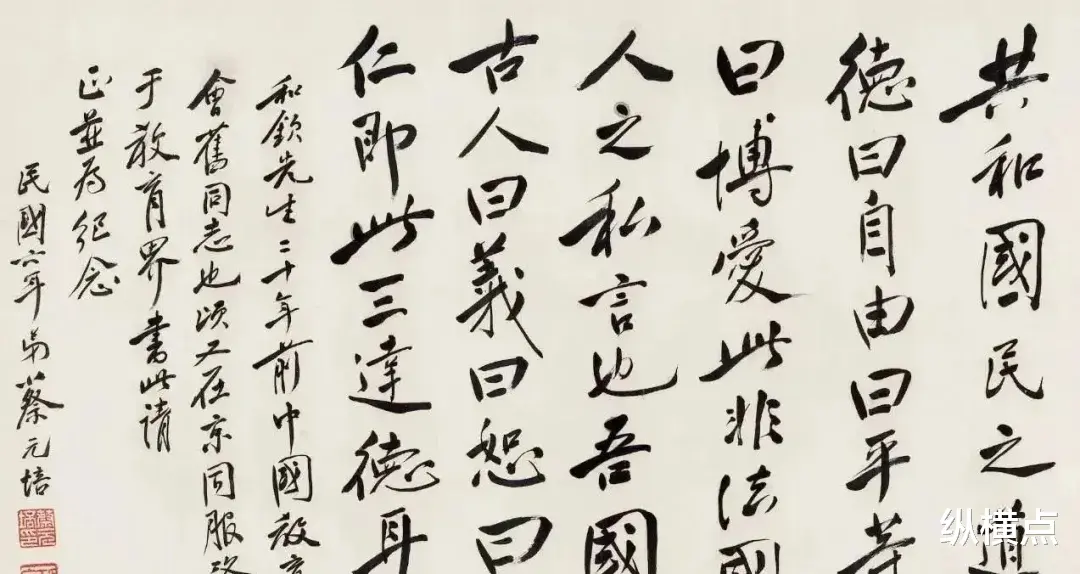 共和國民之道
德曰自由曰平等
曰博愛此非法國
人之私言也吾國
古人曰義曰恕曰
仁即此三達德耳
和欽先生二十年前中國教育
會舊同志也頃又在京同服務
于教育界書此請
正並為紀念
民國六年弟蔡元培
纵横点